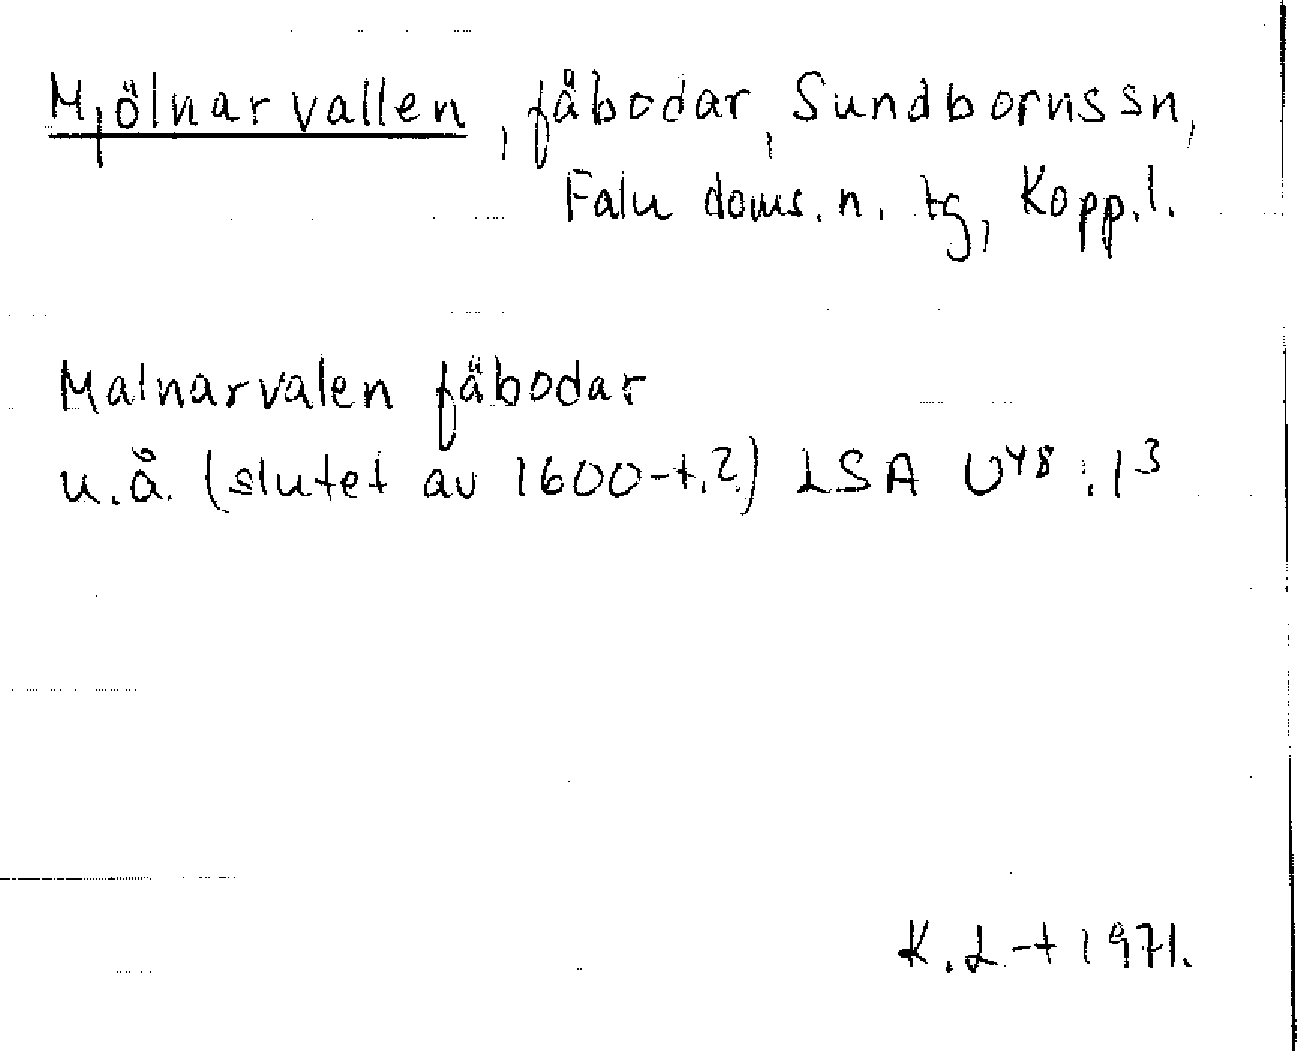 Mjölnarvallen, fäbodar, Sundborns sn,
Falu doms. n. tg, Kopp. l.
Malnarvalen fäbodar
u.å. (slutet av 1600-t.?) LSA U48:1³
K.L-t 1971.